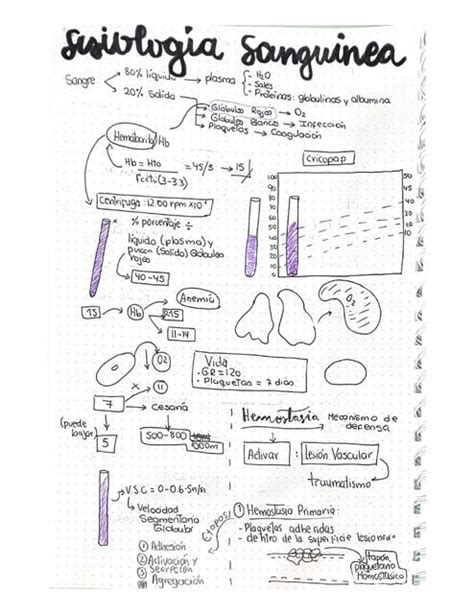 Fisiología Sanguínea
Sangre
80% líquido → plasma
H2O
Sales
Proteínas: globulinas y albumina
20% Solido
Globulos Rojos → O2
Globulos Blancos → Infección
Plaquetas → Coagulación
Hematocrito/Hb
Hb = Hto = 45/3 → 15
Factor (3-3.3)
cricopap
100
90
80
70
60
50
40
30
20
10
0
50
45
40
35
30
20
10
Centrifuga: 1200 rpm x10'
% porcentaje ÷
líquido (plasma) y
(Solido) Globulos
rojos
40-45
15
Hb
Anemia
11-14
O2
Vida
• GR = 120
• Plaquetas = 7 días
11
7 → cesaria
(puede
bajar)
5
500-800
1000m
Hemostasia Mecanismo de
defensa
Activar : Lesión Vascular
traumatismo
V.S.C = 0-0.6
Velocidad
Segmentaria
Globular
Etapas:
① Hemostasia Primaria:
- Plaquetas adheridas
- dentro de la superficie lesionada
tapón
plaquetario
Homostasico
① Adhesión
② Activación y
Secreción
Agregación